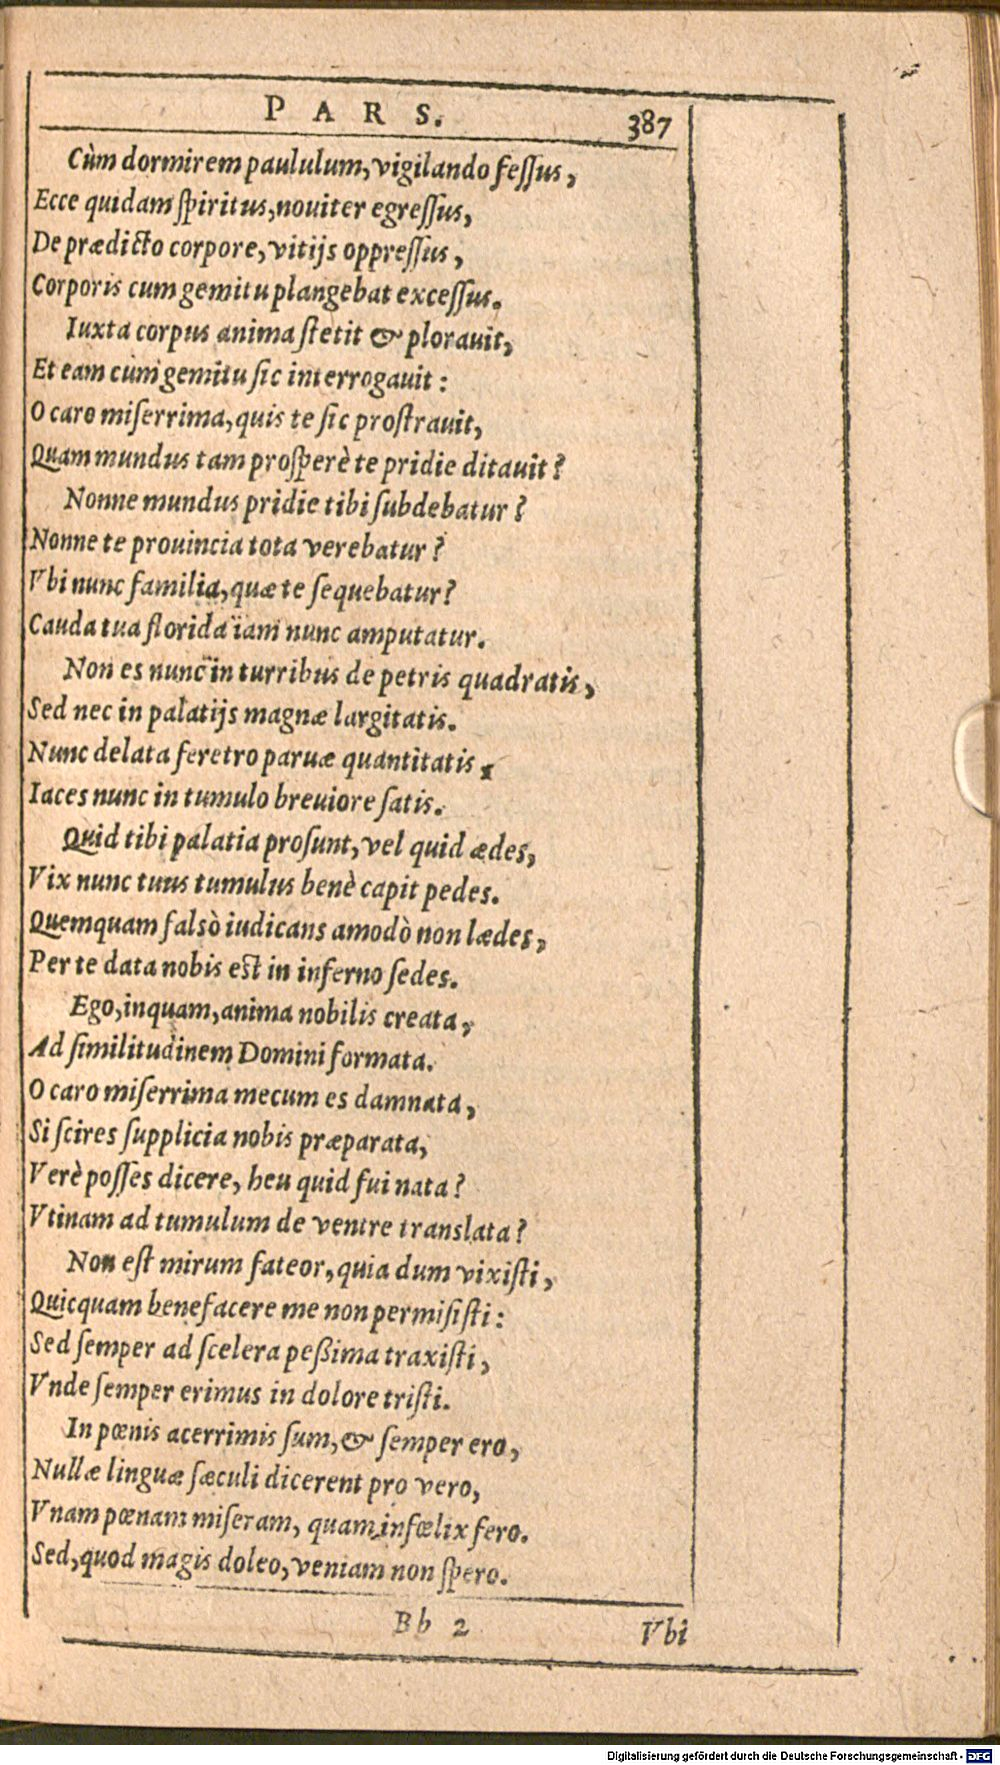 PARS. 387
Cùm dormirem paululum, vigilando feſſus,
Ecce quidam ſpiritus, nouiter egreſſus,
De prædicto corpore, vitijs oppreſſus,
Corporis cum gemitu plangebat exceſſus.
Iuxta corpus anima ſtetit & plorauit,
Et eam cùm gemitu ſic interrogauit:
O caro miſerrima, quis te ſic proſtrauit,
Quam mundus tam proſperè te pridie ditauit?
Nonne mundus pridie tibi ſubdebatur?
Nonne te prouincia tota verebatur?
Vbi nunc familia, quæ te ſequebatur?
Cauda tua florida iam nunc amputatur.
Non es nunc in turribus de petris quadratis,
Sed nec in palatijs magnæ largitatis.
Nunc delata feretro paruæ quantitatis,
Iaces nunc in tumulo breuiore ſatis.
Quid tibi palatia proſunt, vel quid ædes,
Vix nunc tuus tumulus benè capit pedes.
Quemquam falsò iudicans amodò non lædes,
Per te data nobis eſt in inferno ſedes.
Ego, inquam, anima nobilis creata,
Ad ſimilitudinem Domini formata.
O caro miſerrima mecum es damnata,
Si ſcires ſupplicia nobis præparata,
Verè poſſes dicere, heu quid fui nata?
Vtinam ad tumulum de ventre translata?
Non eſt mirum fateor, quia dum vixiſti,
Quicquam benefacere me non permiſiſti:
Sed ſemper ad ſcelera peßima traxiſti,
Vnde ſemper erimus in dolore triſti.
In pœnis acerrimis ſum, & ſemper ero,
Nullæ linguæ ſæculi dicerent pro vero,
Vnam pœnam miſeram, quam infœlix fero.
Sed, quod magis doleo, veniam non ſpero.
Bb 2 Vbi
Digitalisierung gefördert durch die Deutsche Forschungsgemeinschaft - DFG